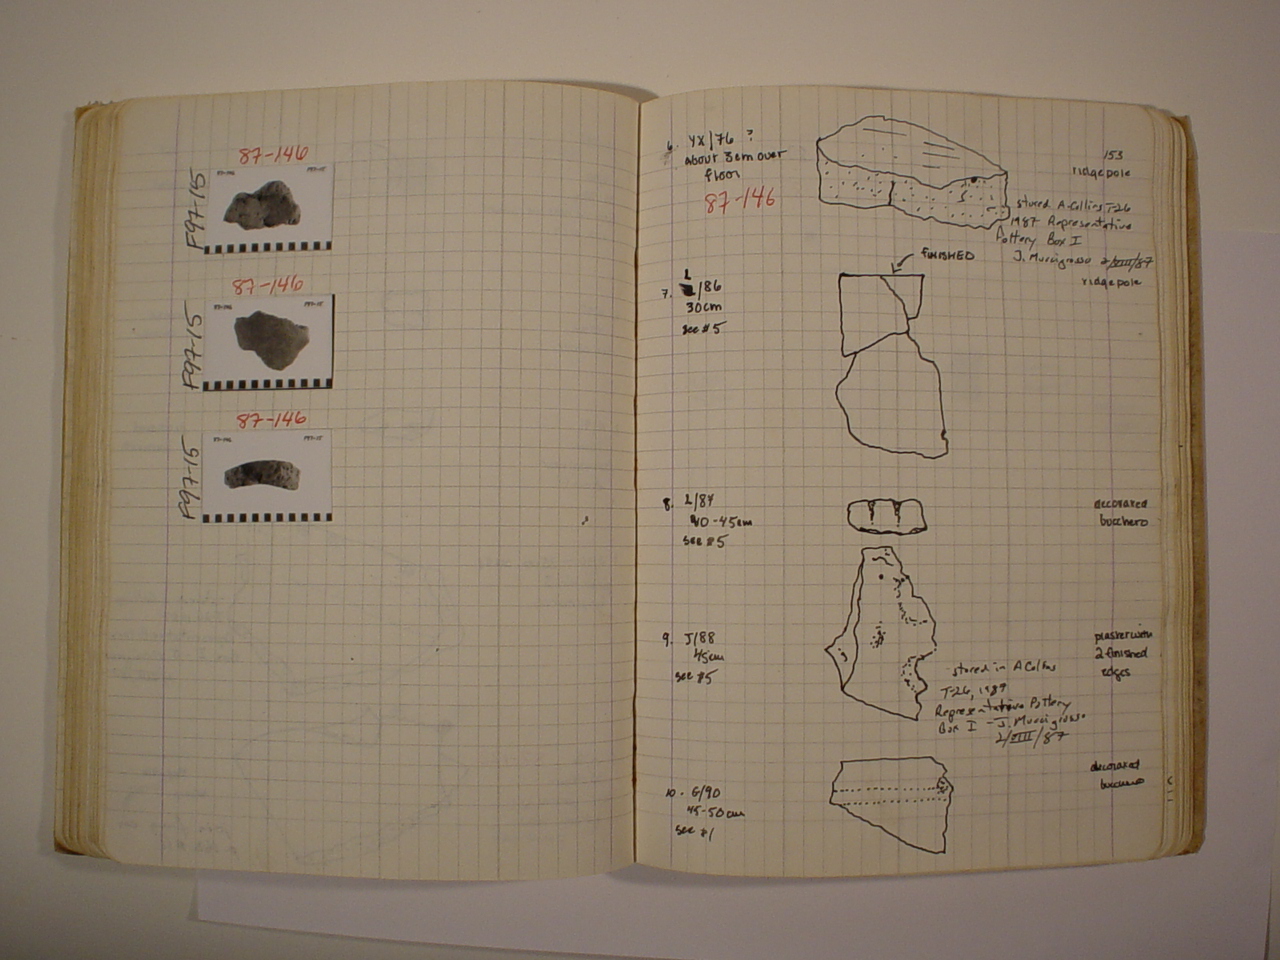 87-146
F97-15
87-146
F97-15
87-146
F97-15
153
6. YX/76 ?
about 3cm over
floor
87-146
ridgepole
stored A-Collins T-26
1987 Representative
Pottery Box I
J. Murcigrosso 2/VIII/87
7. L/86
30cm
see #5
FINISHED
ridgepole
8. L/84
40-45cm
see #5
decorated
bucchero
9. J/88
45cm
see #5
plaster with
2 finished
edges
stored in A Collins
T-26, 1987
Representative Pottery
Box I - J. Murcigrosso
2/VIII/87
10. G/90
45-50cm
see #1
decorated
bucchero